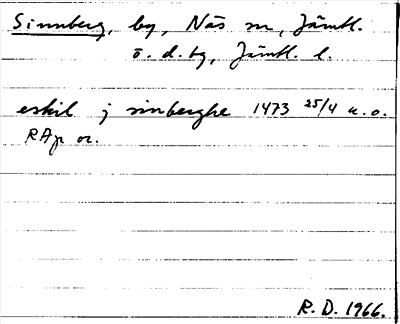 Sinnberg, by, Näs sn, Jämtl.
ö. d. tg, Jämtl. l.
eskil j sinberghe 1473 25/4 u. o.
RAp or.
R. D. 1966.